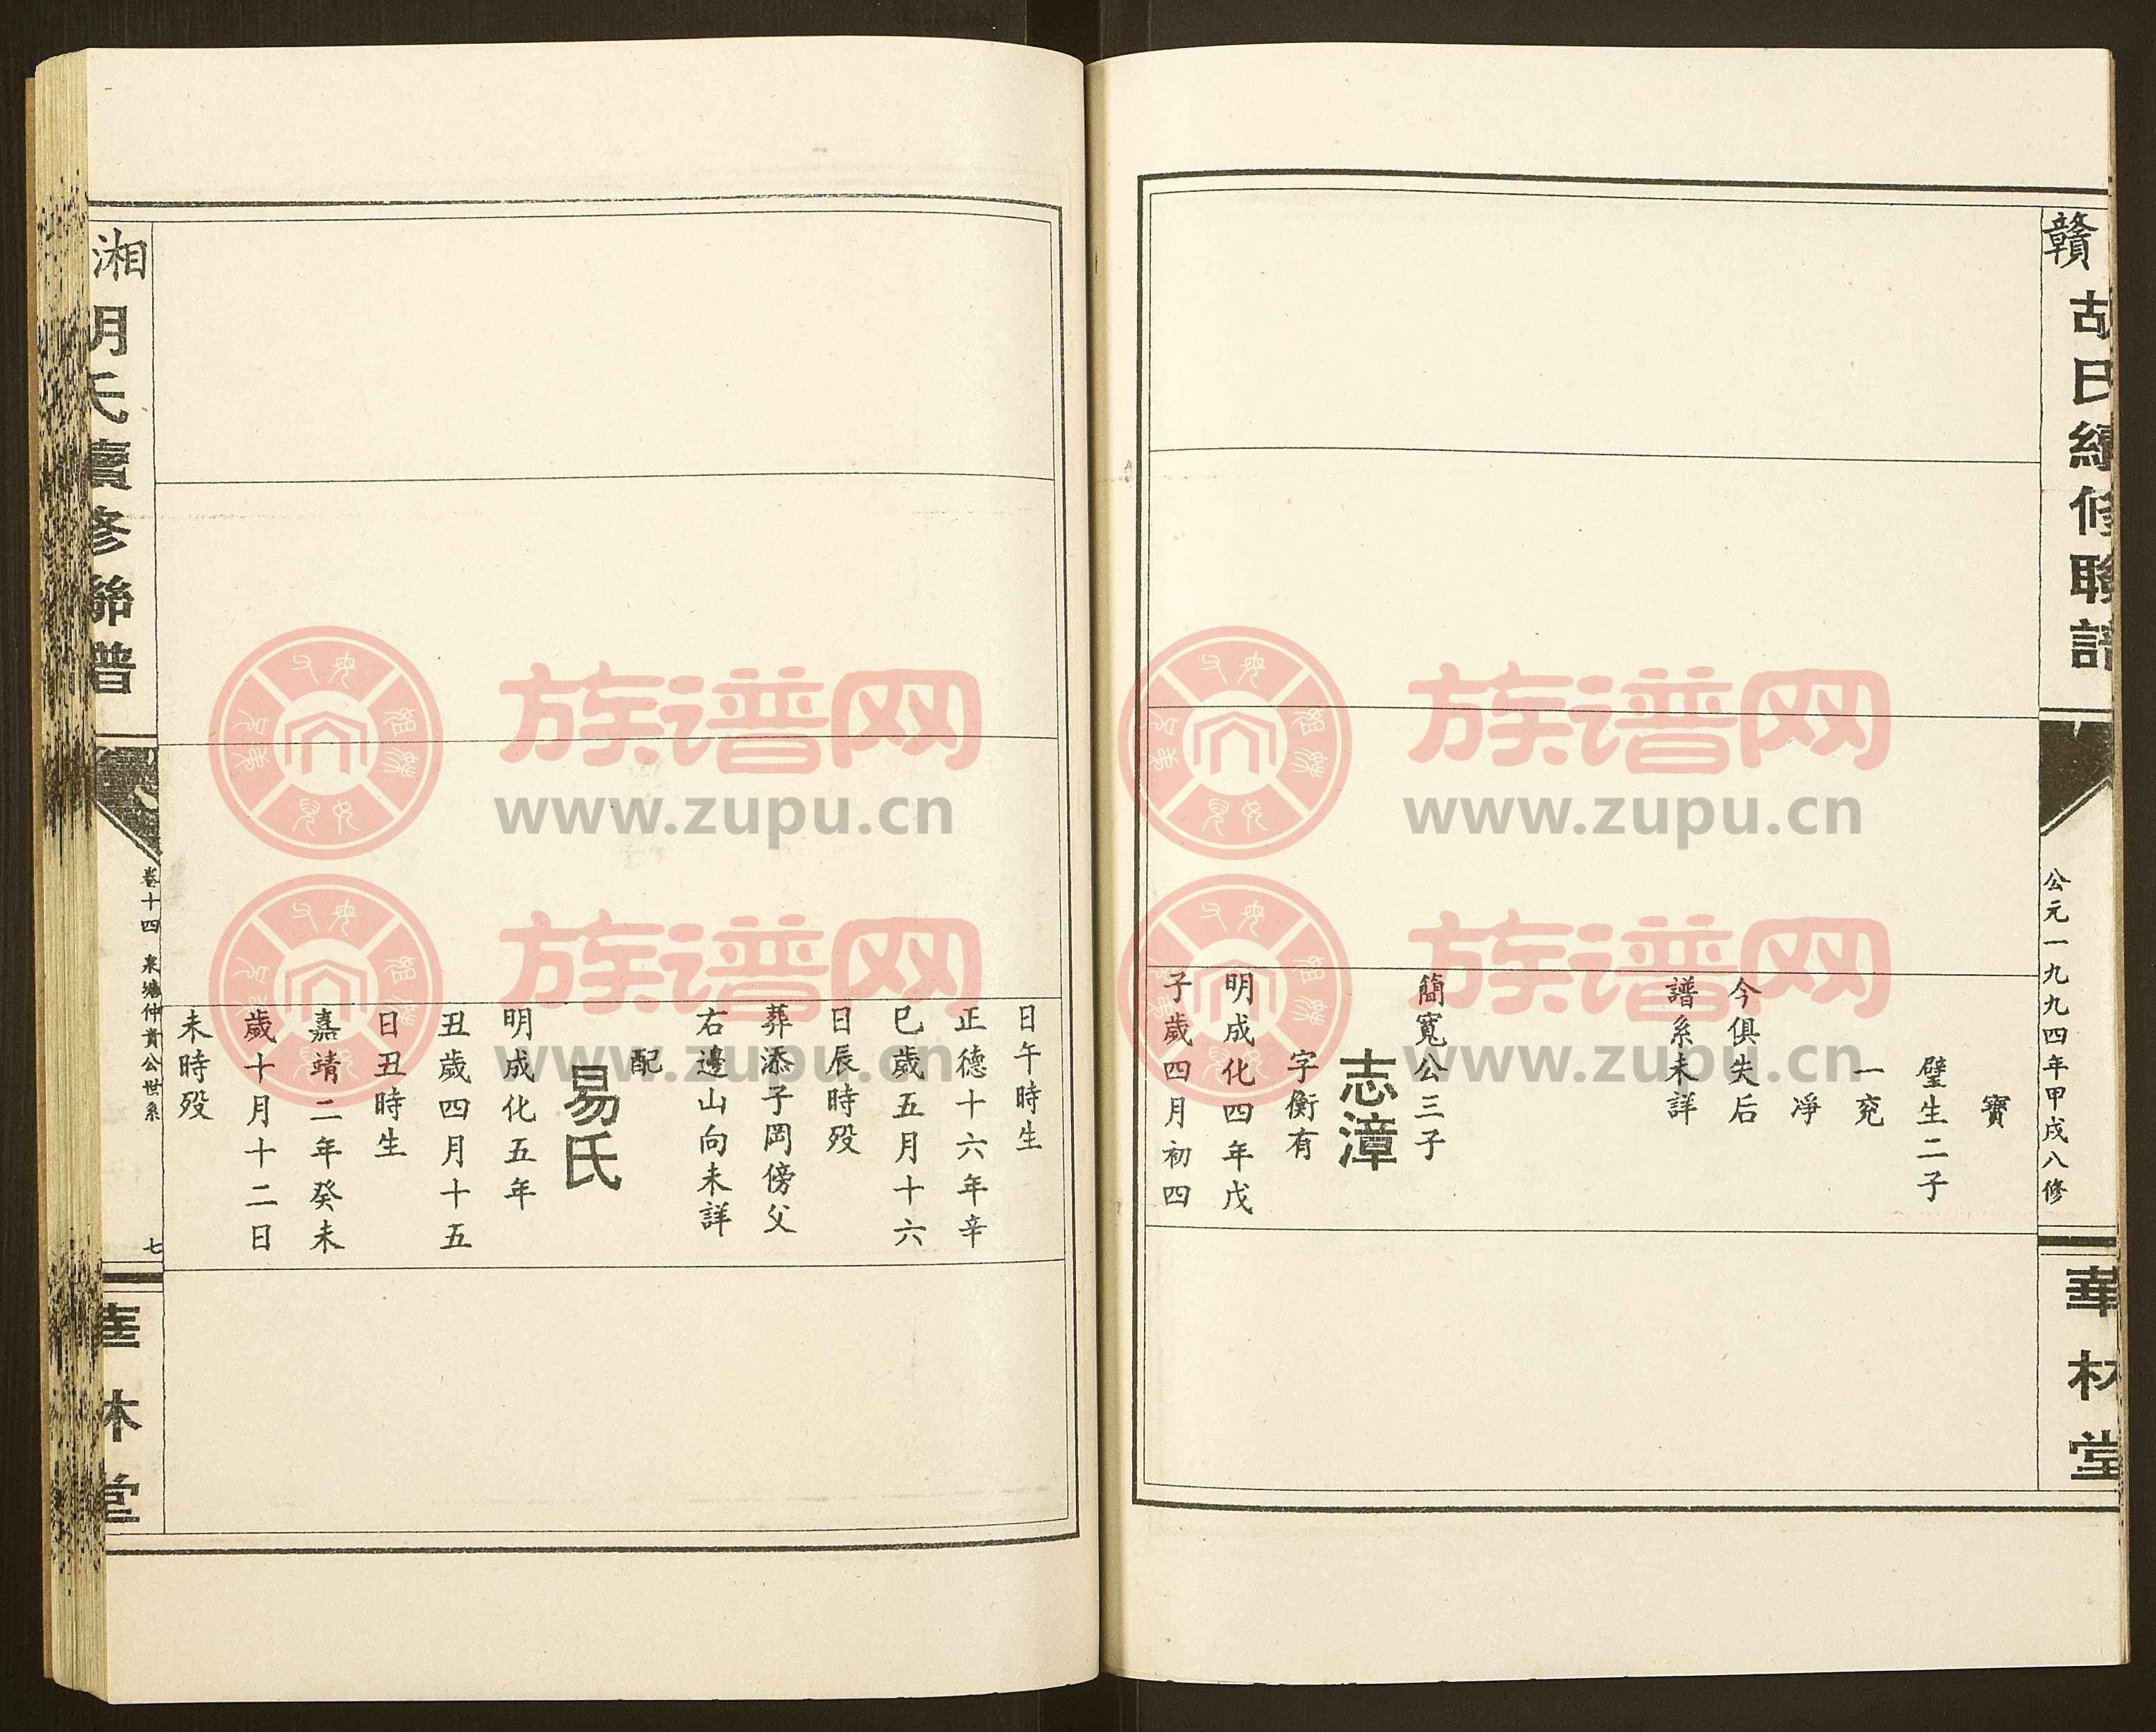 贛
胡氏續修聯譜
公元一九九四年甲戌八修
華林堂
寶
璧生二子
一兖
凈
今俱失后
譜系未詳
簡寬公三子
志漳
字衡有
明成化四年戊
子歲四月初四
日午時生
正德十六年辛
巳歲五月十六
日辰時殁
葬添子岡傍父
右邊山向未詳
配
易氏
明成化五年
丑歲四月十五
日丑時生
嘉靖二年癸未
歲十月十二日
未時殁
湘
胡氏續修聯譜
卷十四 泉塘仲貴公世系
七
華林堂
族谱网
www.zupu.cn
族谱网
www.zupu.cn
族谱网
www.zupu.cn
族谱网
www.zupu.cn